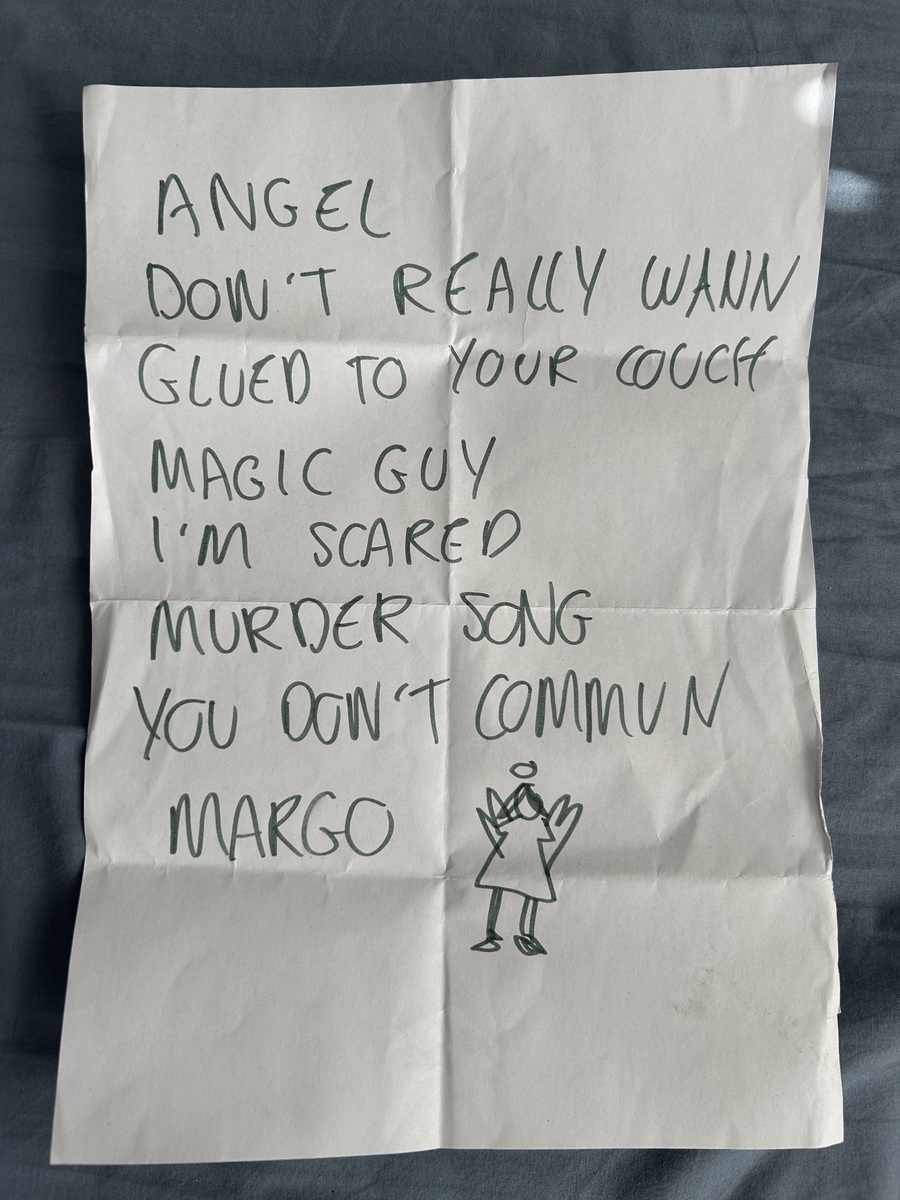 ANGEL
DON'T REALLY WANN
GLUED TO YOUR COUCH
MAGIC GUY
I'M SCARED
MURDER SONG
YOU DON'T COMMUN
MARGO